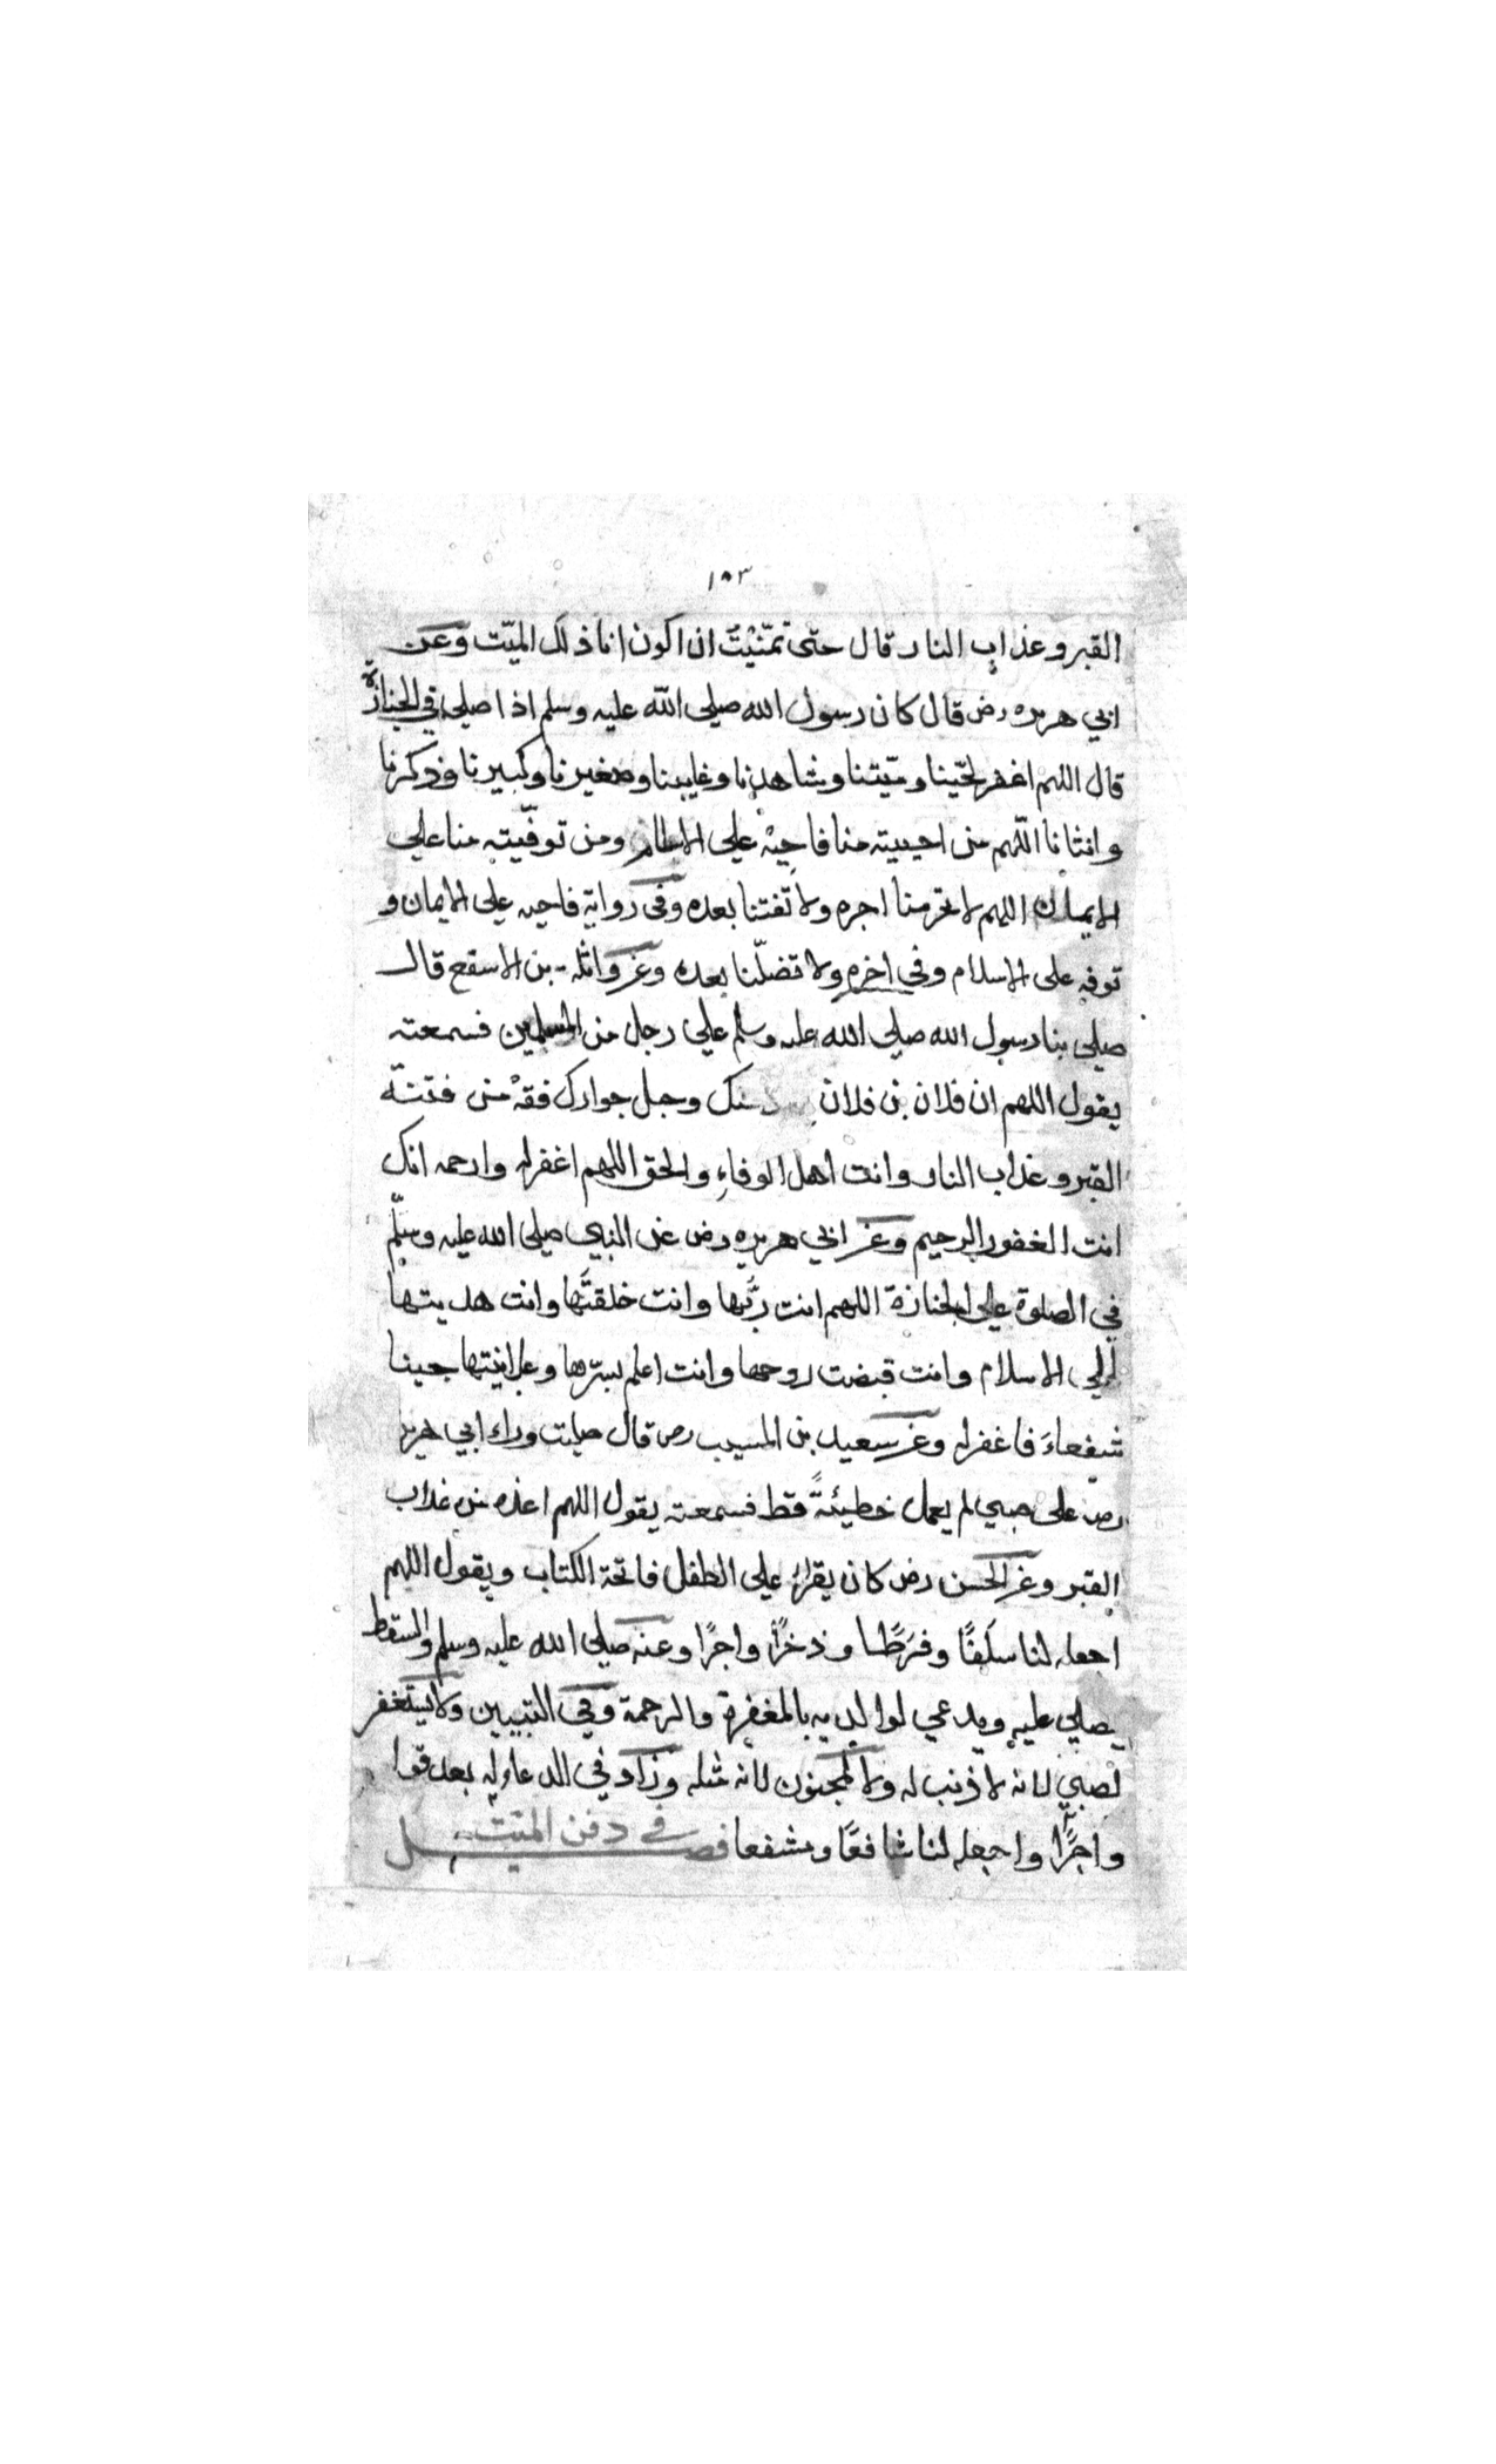 ١٥٣
القبر وعذاب النار قال حتى تمنّيْتُ ان اكون انا ذلك الميّت وعن
ابي هريره رض قال كان رسول الله صلى الله عليه وسلم اذا صلى في الجنازة
قال اللهم اغفر لحيّنا وميّتنا وشاهدنا وغايبنا وصغيرنا وكبيرنا وذكرنا
وانثانا اللّهم من احييته منا فاحيِهْ على الاسلام ومن توفّيته منا على
الايمان اللهم لا تحرمنا اجره ولا تفتنا بعده وفي رواية فاحيه على الايمان و
توفه على الاسلام وفي اخره ولا تضلّنا بعده وعن واثلة بن الاسقع قال
صلى بنا رسول الله صلى الله عليه وسلم على رجل من المسلمين فسمعته
يقول اللهم ان فلان بن فلان وحبل جوارك فقهْ من فتنة
القبر وعذاب النار وانت اهل الوفاء والحق اللهم اغفر له وارحمه انك
انت الغفور الرحيم وعن ابي هريره رض عن النبي صلى الله عليه وسلّم
في الصلوة على الجنازة اللهم انت ربّها وانت خلقتَها وانت هديتها
الى الاسلام وانت قبضت روحها وانت اعلم بسرّها وعلانيتها جينا
شفعاءَ فاغفر له وعن سعيد بن المسيب رض قال صليت وراء ابي هرير
رض على صبي لم يعمل خطيئةً قط فسمعته يقول اللهم اعذه من عذاب
القبر وعن الحسن رض كان يقرأ على الطفل فاتحة الكتاب ويقول اللهم
اجعله لنا سلَفًا وفرَطًا وذخرًا واجرًا وعنه صلى الله عليه وسلم والسقط
يصلى عليه ويدعي لوالديه بالمغفرة والرحمة وفي التبيين ولا يستغفر
لصبي لانه لا ذنب له ولا لمجنون لانه مثله وزاد في الدعاء له بعد قوا
واجرًا واجعله لنا شافعًا ومشفعا فصل في دفن الميّت